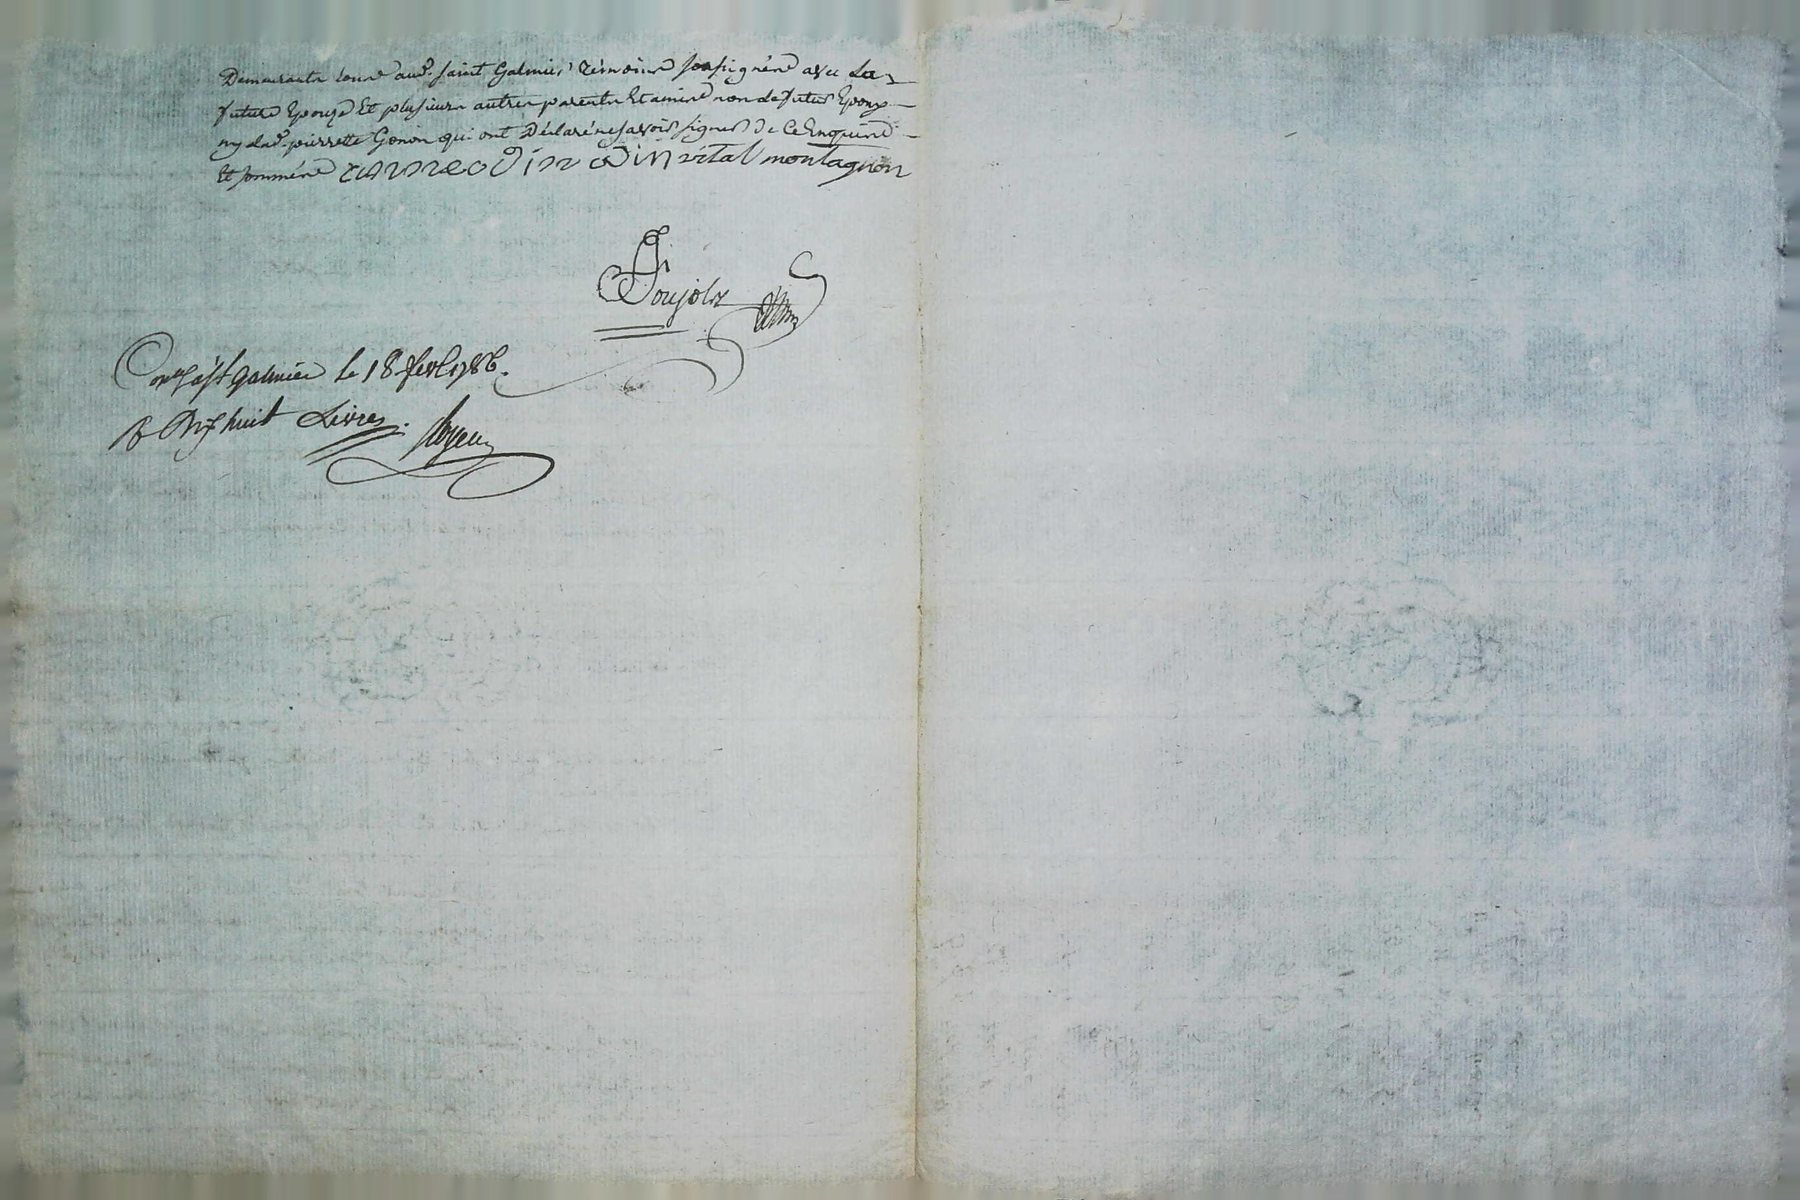 Demeurants tous aud. saint Galmier témoins soussignés avec La
future Epouze Et plusieurs autres parents Et amis non le futur Epoux
ny lad. pierrette Gonon qui ont Déclaré ne savoir signer de ce Enquis
Et sommés vital montagnon
Poujols
a st galmier le 18 fevr 1786.
R Dix huit Livres.